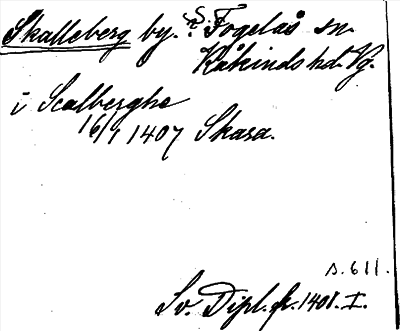 Skalleberg by. S. Fogelås sn.
Kåkinds hd. Vg.
i Scalberghe
16/1 1407 Skara.
s. 611.
Sv. Dipl. fr. 1401. I.